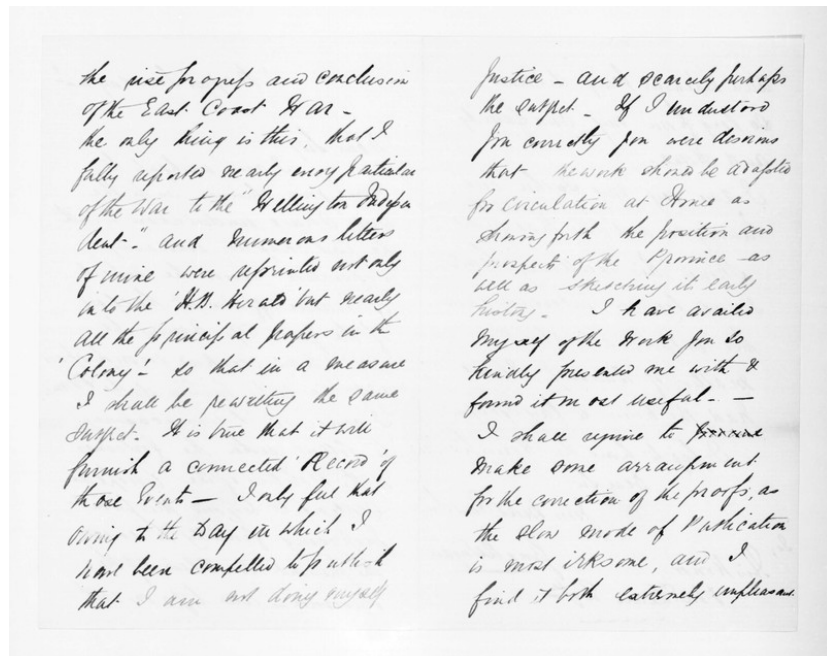 the rise progress and conclusion
of the East Coast War -
the only thing is this, that I
fully reported nearly every particular
of the War to the "Wellington Indepen
dent". and numerous letters
of mine were reprinted not only
into the 'H.B. Herald' but nearly
all the principal papers in the
'Colony' - so that in a measure
I shall be rewriting the same
subject. It is true that it will
furnish a connected 'Record' of
those Events - I only feel that
owing to the Day in which I
have been compelled to publish
that I am not doing myself
Justice - and scarcely perhaps
the subject. If I understood
you correctly you were desirous
that the work should be adapted
for circulation at Home as
showing forth the position and
prospects of the Province - as
well as sketching it early
history. I have availed
myself of the Work you so
kindly presented me with &
found it most useful. -
I shall require to
make some arrangement
for the correction of the proofs, as
the slow mode of Publication
is most irksome, and I
find it both extremely unpleasant